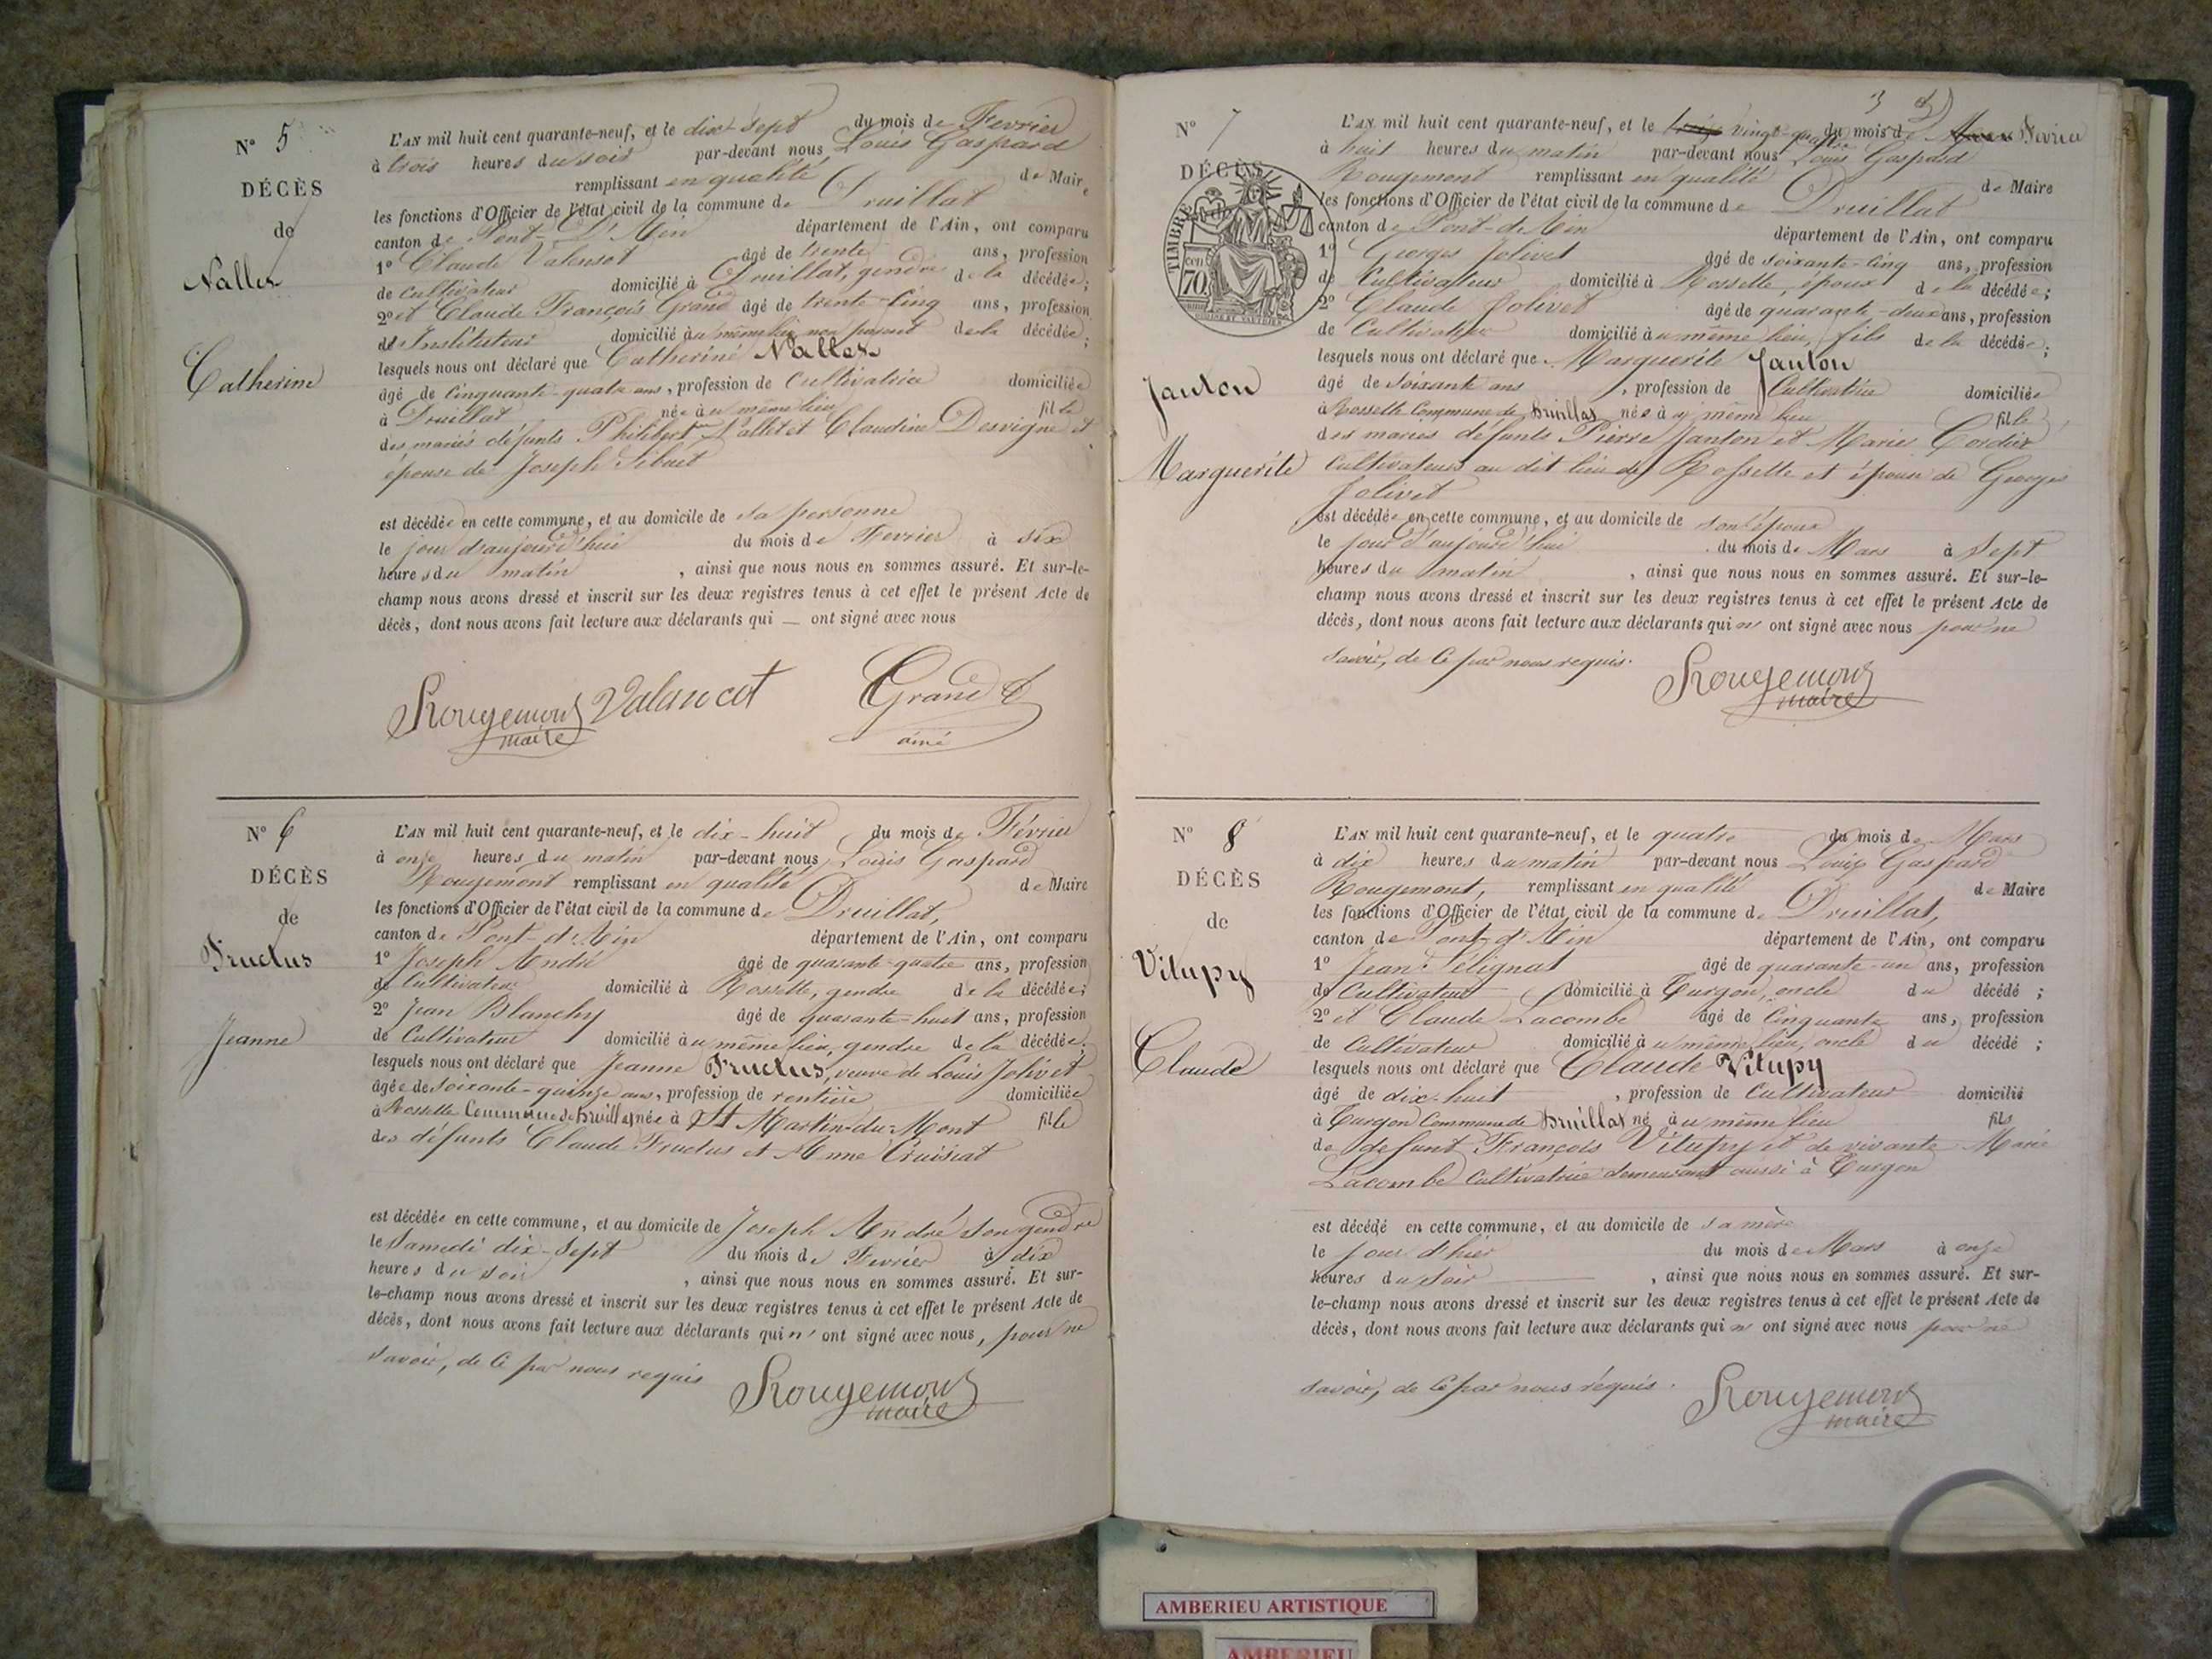 N° 5
DÉCÈS
de
Nallet
Catherine
L'AN mil huit cent quarante-neuf, et le dix-sept du mois de Fevrier
à trois heures du soir par-devant nous Louis Gaspard
remplissant en qualité de Maire
les fonctions d'Officier de l'état civil de la commune de Druillat
canton de Pont-D'Ain département de l'Ain, ont comparu
1° Claude Valensot âgé de trente ans, profession
de cultivateur domicilié à Druillat, gendre de la décédée;
2° et Claude François Grand âgé de trente-cinq ans, profession
de Instituteur domicilié au même lieu non parent de la décédée;
lesquels nous ont déclaré que Catherine Nallet
âgé de cinquante-quatre ans, profession de Cultivatrice domiciliée
à Druillat née au même lieu fille
des mariés défunts Philibert Nallet et Claudine Desvigne et
épouse de Joseph Sibuet
est décédée en cette commune, et au domicile de sa personne
le jour d'aujourd'hui du mois de Fevrier à six
heures du matin, ainsi que nous nous en sommes assuré. Et sur-le-
champ nous avons dressé et inscrit sur les deux registres tenus à cet effet le présent Acte de
décès, dont nous avons fait lecture aux déclarants qui — ont signé avec nous
Rougemont Valancot Grand
maire ainé
N° 6
DÉCÈS
de
Fructus
Jeanne
L'AN mil huit cent quarante-neuf, et le dix-huit du mois de Février
à onze heures du matin par-devant nous Louis Gaspard
Rougemont remplissant en qualité de Maire
les fonctions d'Officier de l'état civil de la commune de Druillat,
canton de Pont-d'Ain département de l'Ain, ont comparu
1° Joseph André âgé de quarante-quatre ans, profession
de Cultivateur domicilié à Rossette, gendre de la décédée;
2° Jean Blanchy âgé de quarante-huit ans, profession
de Cultivateur domicilié au même lieu, gendre de la décédée;
lesquels nous ont déclaré que Jeanne Fructus, veuve de Louis Jolivet
âgée de soixante-quinze ans, profession de rentière domiciliée
à Rossette Commune de Druillat née à St Martin-du-Mont fille
des défunts Claude Fructus et Anne Cruisiat
est décédée en cette commune, et au domicile de Joseph André son gendre
le Samedi dix-sept du mois de Fevrier à dix
heures du soir, ainsi que nous nous en sommes assuré. Et sur-
le-champ nous avons dressé et inscrit sur les deux registres tenus à cet effet le présent Acte de
décès, dont nous avons fait lecture aux déclarants qui n'ont signé avec nous, pour ne
savoir, de ce par nous requis
Rougemont
maire
3
N° 7
DÉCÈS
TIMBRE
70
Janton
Marguerite
L'AN mil huit cent quarante-neuf, et le vingt-quatre du mois de Mars Fevrier
à huit heures du matin par-devant nous Louis Gaspard
Rougemont remplissant en qualité de Maire
les fonctions d'Officier de l'état civil de la commune de Druillat
canton de Pont-d'Ain département de l'Ain, ont comparu
1° Georges Jolivet âgé de soixante-cinq ans, profession
de Cultivateur domicilié à Rossette, époux de la décédée;
2° Claude Jolivet âgé de quarante-deux ans, profession
de Cultivateur domicilié au même lieu, fils de la décédée;
lesquels nous ont déclaré que Marguerite Janton
âgé de soixante ans, profession de Cultivatrice domiciliée
à Rossette Commune de Druillat née à même lieu fille
des mariés défunts Pierre Janton et Marie Cordier
Cultivateurs au dit lieu de Rossette et épouse de Georges
Jolivet
est décédée en cette commune, et au domicile de son époux
le jour d'aujourd'hui du mois de Mars à Sept
heures du matin, ainsi que nous nous en sommes assuré. Et sur-le-
champ nous avons dressé et inscrit sur les deux registres tenus à cet effet le présent Acte de
décès, dont nous avons fait lecture aux déclarants qui n'ont signé avec nous pour ne
savoir, de ce par nous requis.
Rougemont
maire
N° 8
DÉCÈS
de
Vitupy
Claude
L'AN mil huit cent quarante-neuf, et le quatre du mois de Mars
à dix heures du matin par-devant nous Louis Gaspard
Rougemont, remplissant en qualité de Maire
les fonctions d'Officier de l'état civil de la commune de Druillat,
canton de Pont-d'Ain département de l'Ain, ont comparu
1° Jean Sélignat âgé de quarante-un ans, profession
de Cultivateur domicilié à Turgon, oncle du décédé;
2° et Claude Lacombe âgé de Cinquante ans, profession
de Cultivateur domicilié au même lieu, oncle du décédé;
lesquels nous ont déclaré que Claude Vitupy
âgé de dix-huit, profession de Cultivateur domicilié
à Turgon Commune de Druillat né au même lieu fils
de defunt François Vitupy et de vivante Marie
Lacombe Cultivatrice demeurant aussi à Turgon
est décédé en cette commune, et au domicile de sa mère
le jour d'hier du mois de Mars à onze
heures du soir, ainsi que nous nous en sommes assuré. Et sur-
le-champ nous avons dressé et inscrit sur les deux registres tenus à cet effet le présent Acte de
décès, dont nous avons fait lecture aux déclarants qui n'ont signé avec nous pour ne
savoir, de ce par nous requis.
Rougemont
maire
AMBERIEU ARTISTIQUE
AMBERIEU